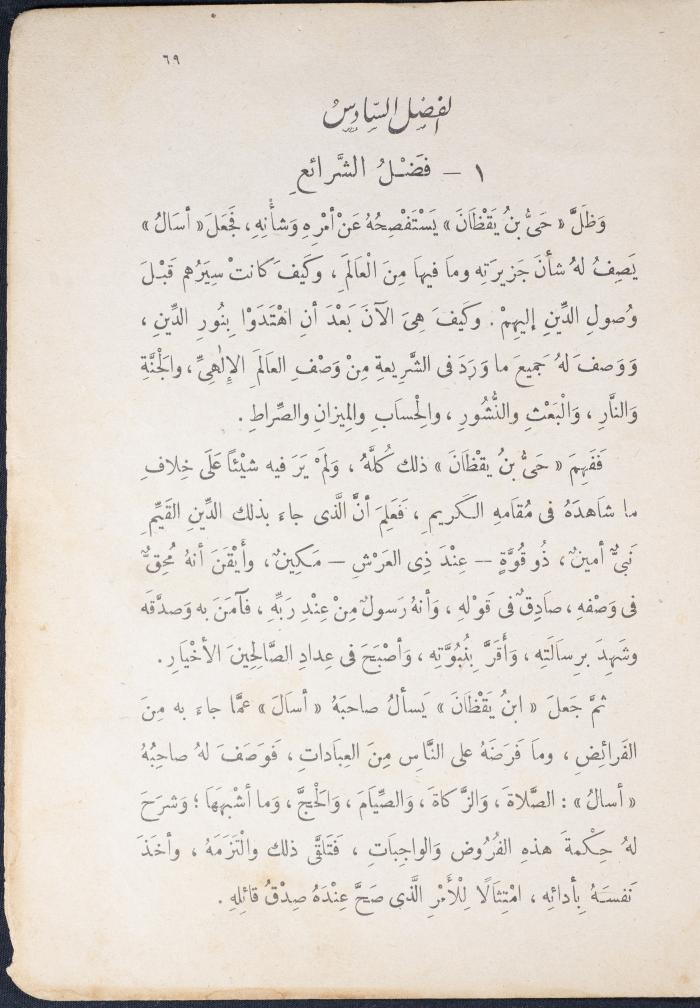 ٦٩
الفصل السادس
١ – فَضْلُ الشَّرائعِ
وَظَلَّ « حَىُّ بنُ يَقْظَانَ » يَسْتَفْصِحُهُ عَنْ أمْرِهِ وَشأْنِهِ ، فَجَعَلَ « أسَالُ »
يَصِفُ لهُ شأنَ جَزيرَتِه وما فيها مِنَ الْعَالَمِ ، وكَيفَ كانتْ سِيَرُهم قَبْلَ
وُصولِ الدِّينِ إليهِمْ . وكَيفَ هِىَ الآنَ بَعْدَ أنِ اهْتَدَوْا بِنُورِ الدِّينِ ،
وَوَصفَ لهُ جميعَ ما وَرَدَ فى الشَّرِيعةِ مِنْ وَصْفِ العَالَمِ الإلٰهِىِّ ، والْجَنَّةِ
وَالنَّارِ ، وَالْبَعْثِ والنُّشُورِ ، والْحِسَابِ والمِيزانِ والصِّراطِ .
فَفَهِمَ « حَىُّ بنُ يقظَانَ » ذلك كُلَّهُ ، وَلَمْ يَرَ فيه شيْئاً عَلَى خِلافِ
ما شاهَدَهُ فى مُقَامهِ الكَريمِ ، فَعَلِمَ أنَّ الَّذى جاءَ بذلك الدِّينِ القَيِّمِ
نَبىٌّ أمينٌ ، ذُو قُوَّةٍ – عِنْدَ ذِى العَرْشِ – مَكِينٌ ، وأيْقَنَ أنهُ مُحِقٌّ
فى وَصْفِهِ ، صادِقٌ فى قَوْلهِ ، وَأنهُ رَسولٌ مِنْ عِنْدِ رَبِّهِ ، فَآمَنَ به وَصدَّقَه
وشَهِدَ برِسالَتِه ، وَأقَرَّ بِنُبُوَّتِه ، وَأصْبَحَ فى عِدادِ الصَّالِحِينَ الأخْيَارِ .
ثمَّ جَعلَ « ابنُ يَقْظَانَ » يَسألُ صاحبَهُ « أسَالَ » عمَّا جاءَ به مِنَ
الفَرائضِ ، وما فَرَضَهُ على النَّاسِ مِنَ العِبَاداتِ ، فَوصَفَ لهُ صاحِبُهُ
« أسالُ » : الصَّلاةَ ، وَالزَّكاةَ ، وَالصِّيَامَ ، وَالْحَجَّ ، وَما أشْبهَهَا ؛ وَشرَحَ
لهُ حِكْمةَ هذهِ الفُرُوض وَالواجِبَاتِ ، فَتَلقَّى ذلك والْتَزَمَهُ ، وأخَذَ
نَفسَهُ بِأدائِه ، امْتِثَالًا لِلْأمْرِ الَّذى صَحَّ عِنْدَهُ صِدْقُ قائلِهِ .